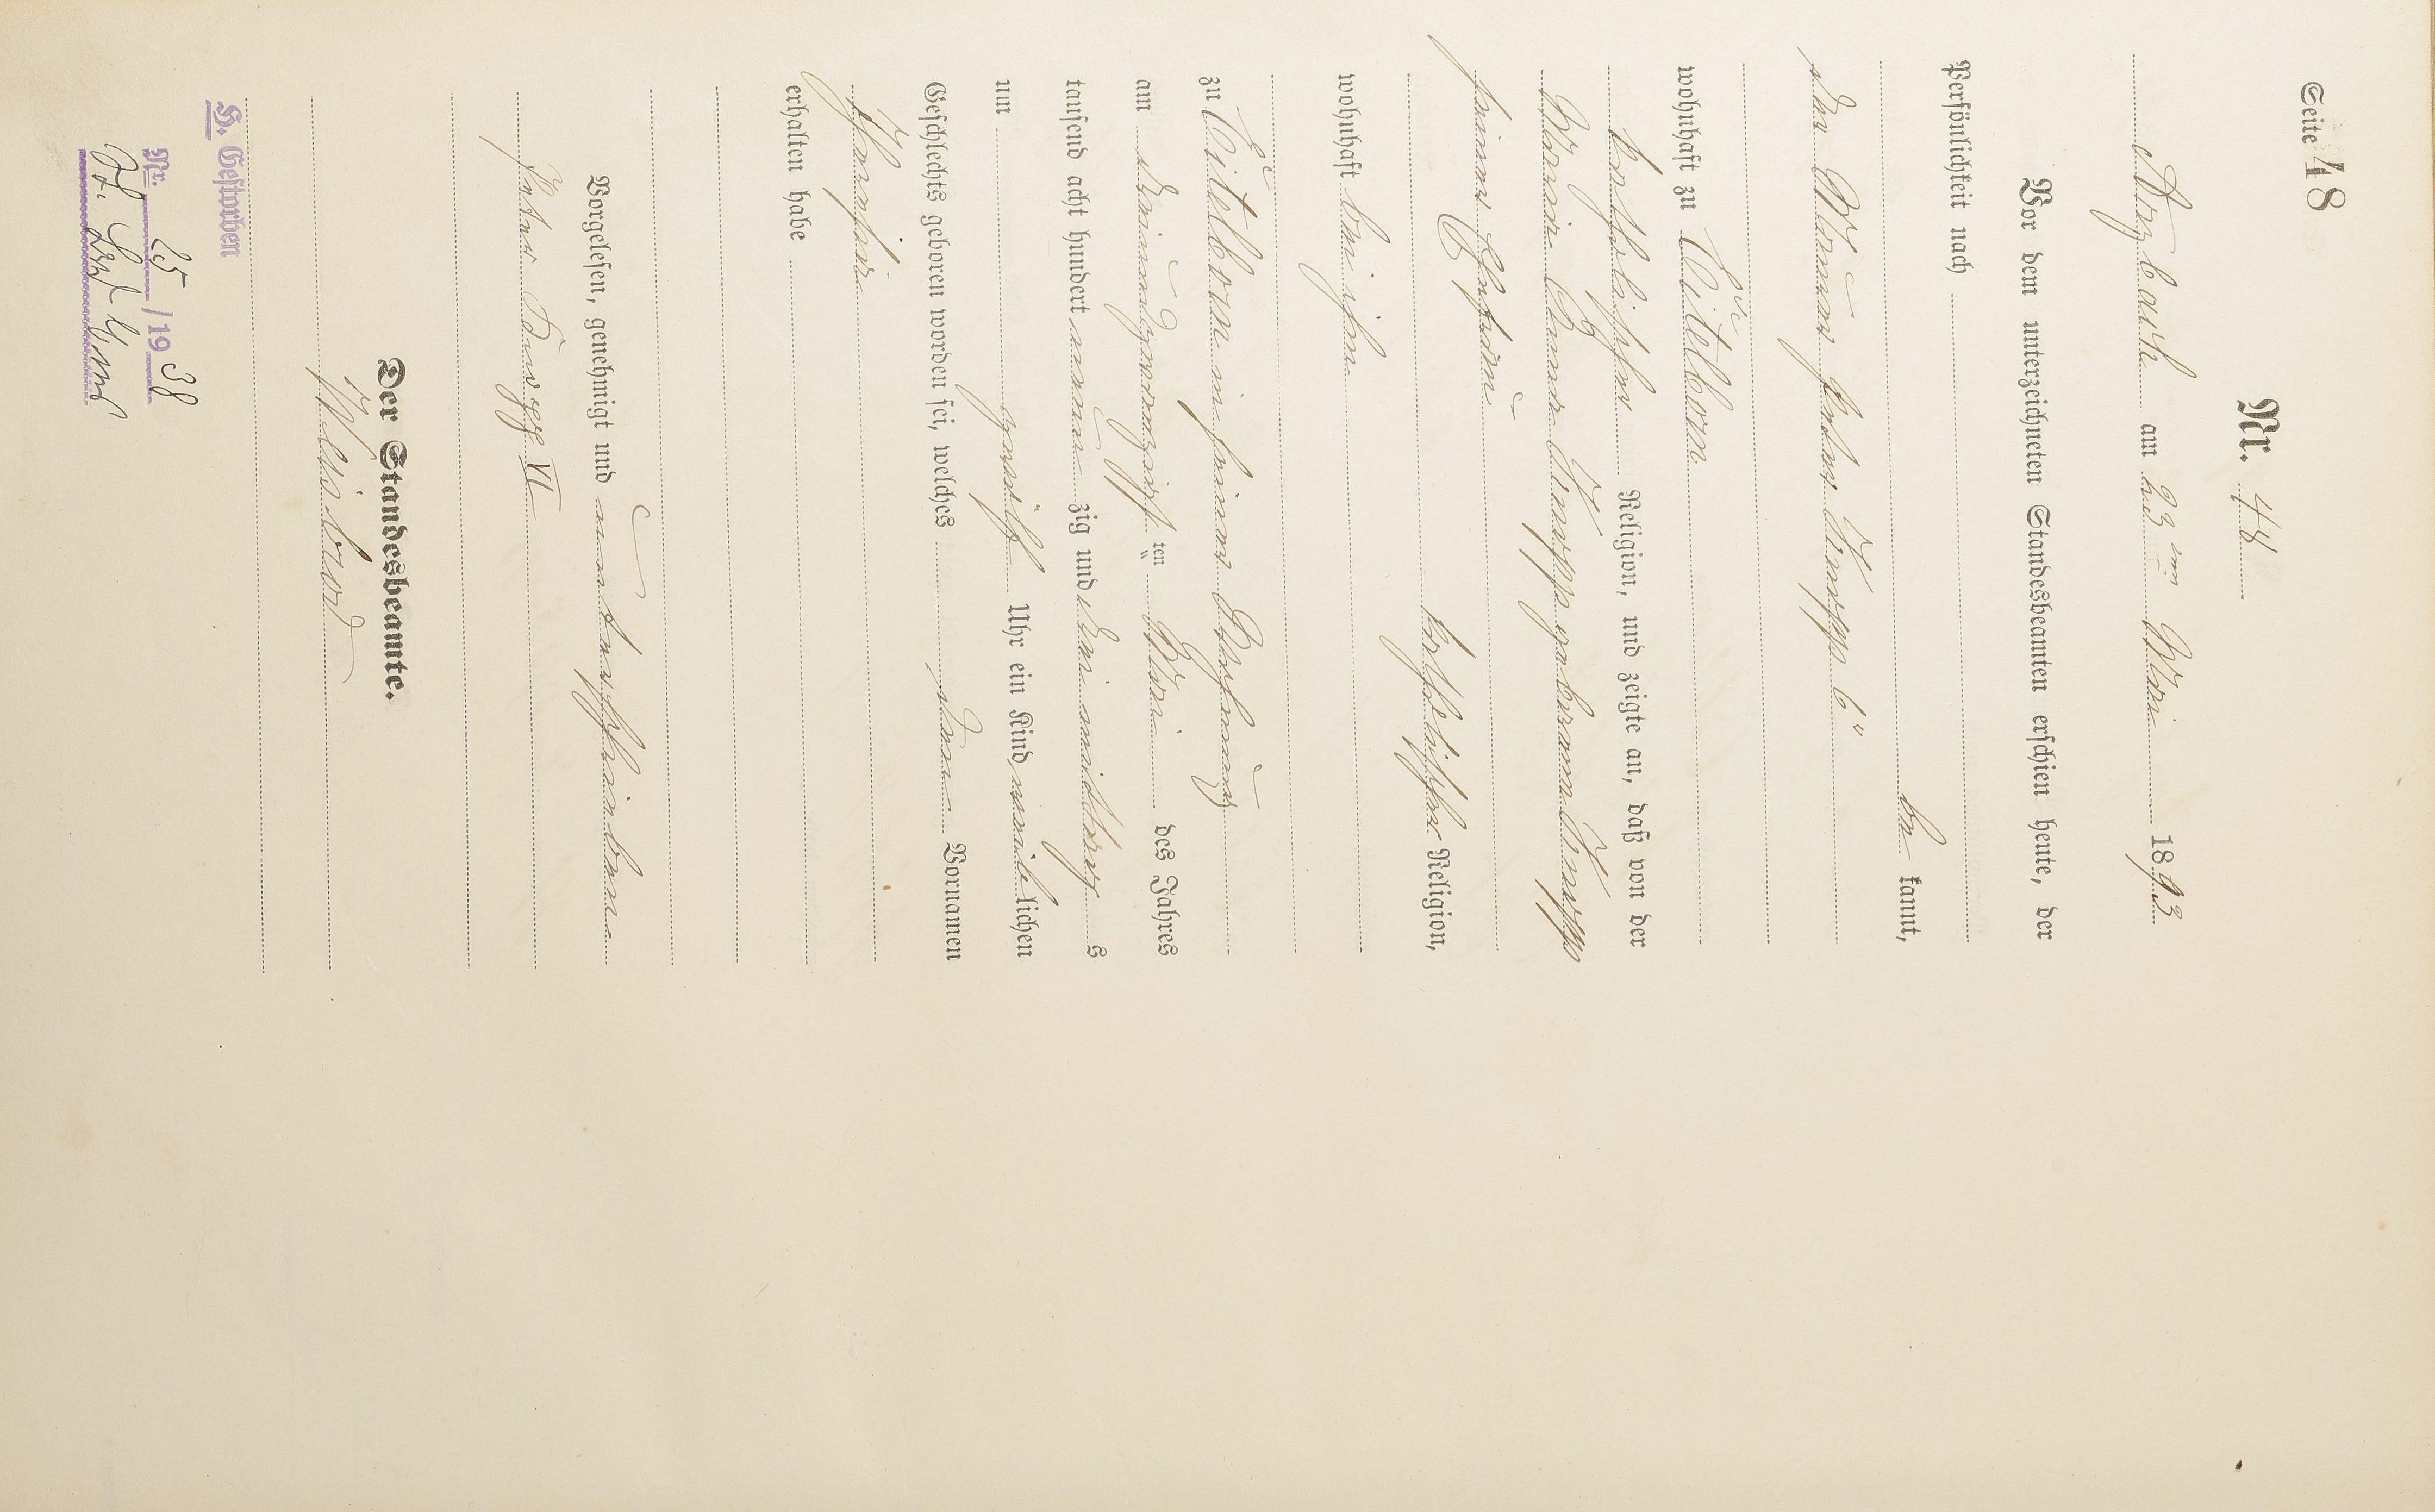 Seite 48
Nr. 48
Arzbach am 23ten Mai 1893.
Vor dem unterzeichneten Standesbeamten erschien heute, der
Persönlichkeit nach
be kannt,
der Maurer Peter Knopp 6r
wohnhaft zu Eitelborn
katholischer Religion, und zeigte an, daß von der
Maria Anna Knopp geborenen Knopp
seiner Ehefrau
katholischer Religion,
wohnhaft bei ihm
zu Eitelborn in seiner Wohnung
am dreiundzwanzigsten Mai des Jahres
tausend acht hundert neun zig und drei mittags s
um zwölf Uhr ein Kind weiblichen
Geschlechts geboren worden sei, welches den Vornamen
erhalten habe
Vorgelesen, genehmigt und unterschrieben
Peter VI
Der Standesbeamte.
H. Gestorben
Nr. 25/1938